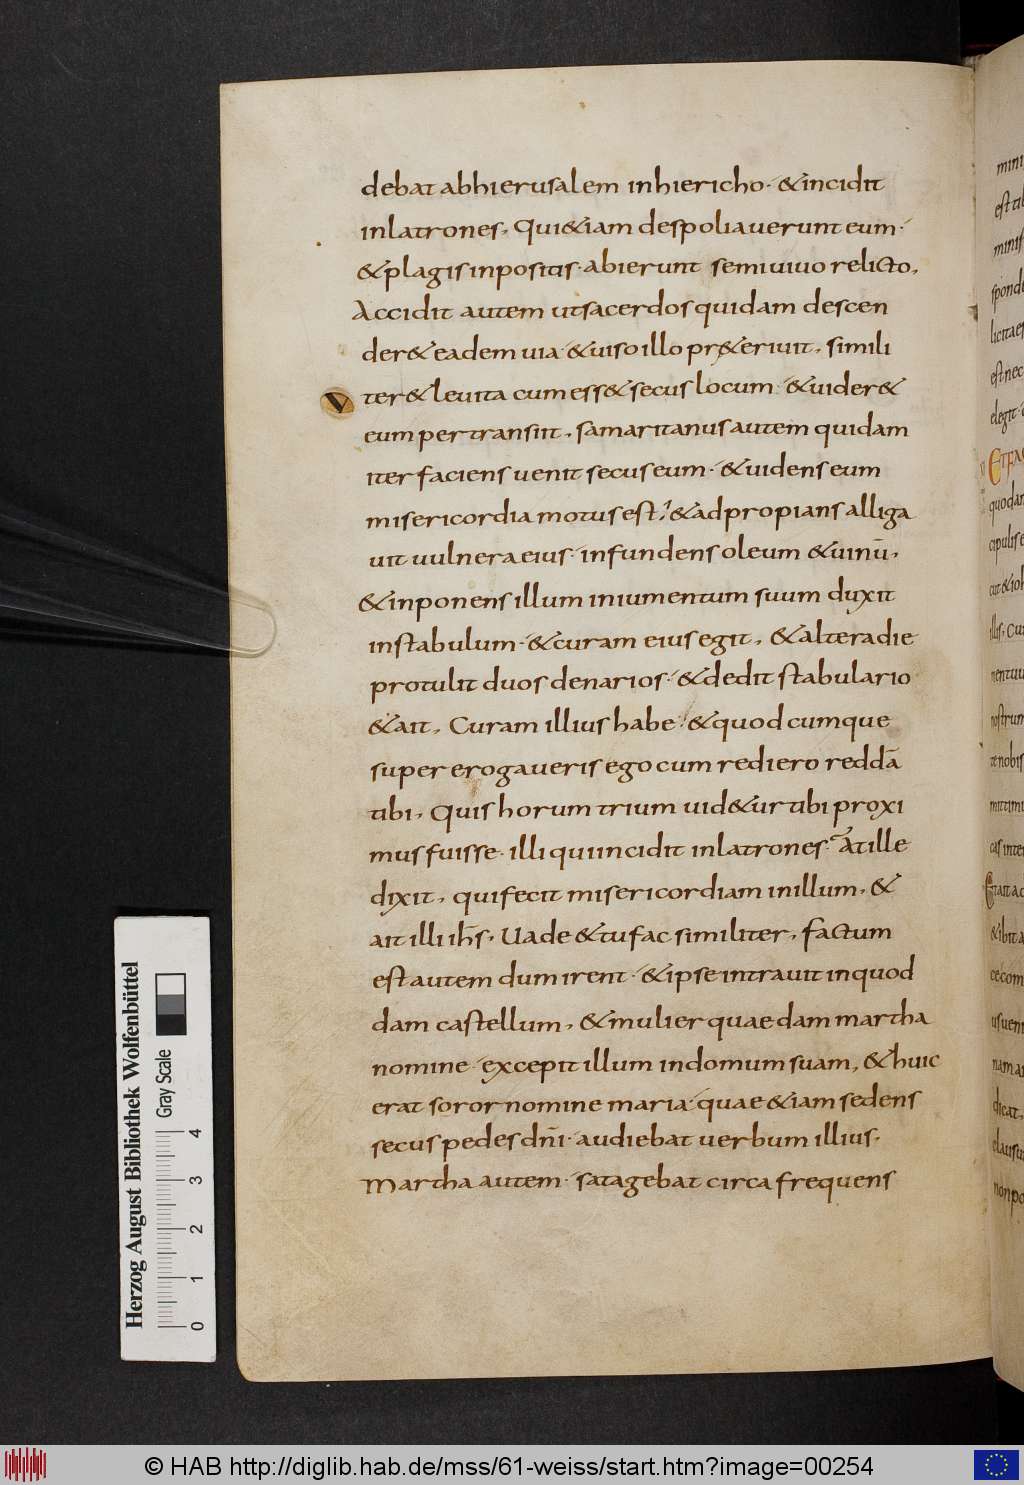 debat abhierusalem inhiericho· &incidit
inlatrones, Qui&iam despoliauerunt eum·
&plagis inpositis· abierunt semiuiuo relicto,
Accidit autem utsacerdos quidam descen
der& eadem uia· &uiso illo pr&eriuit, simili
ter& leuita cum ess& secus locum· &uider&
eum pertransiit, samaritanus autem quidam
iter faciens uenit secus eum· &uidens eum
misericordia motus est, &adpropians alliga
uit uulnera eius· infundens oleum &uinū,
&inponens illum iniumentum suum duxit
instabulum· &curam eius egit, &altera die
protulit duos denarios· &dedit stabulario
&ait, Curam illius habe· &quodcumque
super erogaueris ego cum rediero reddā
tibi, Quis horum trium uid&ur tibi proxi
mus fuisse· illi qui incidit inlatrones· Atille
dixit, qui fecit misericordiam inillum, &
ait illi ih̄s, Uade &tu fac similiter, factum
est autem dum irent· &ipse intrauit inquod
dam castellum, &mulier quaedam martha
nomine· excepit illum indomum suam, &huic
erat soror nomine maria· quae &iam sedens
secus pedes dn̄i· audiebat uerbum illius,
Martha autem· satagebat circa frequens
Herzog August Bibliothek Wolfenbüttel
Gray Scale
0 1 2 3 4
© HAB http://diglib.hab.de/mss/61-weiss/start.htm?image=00254